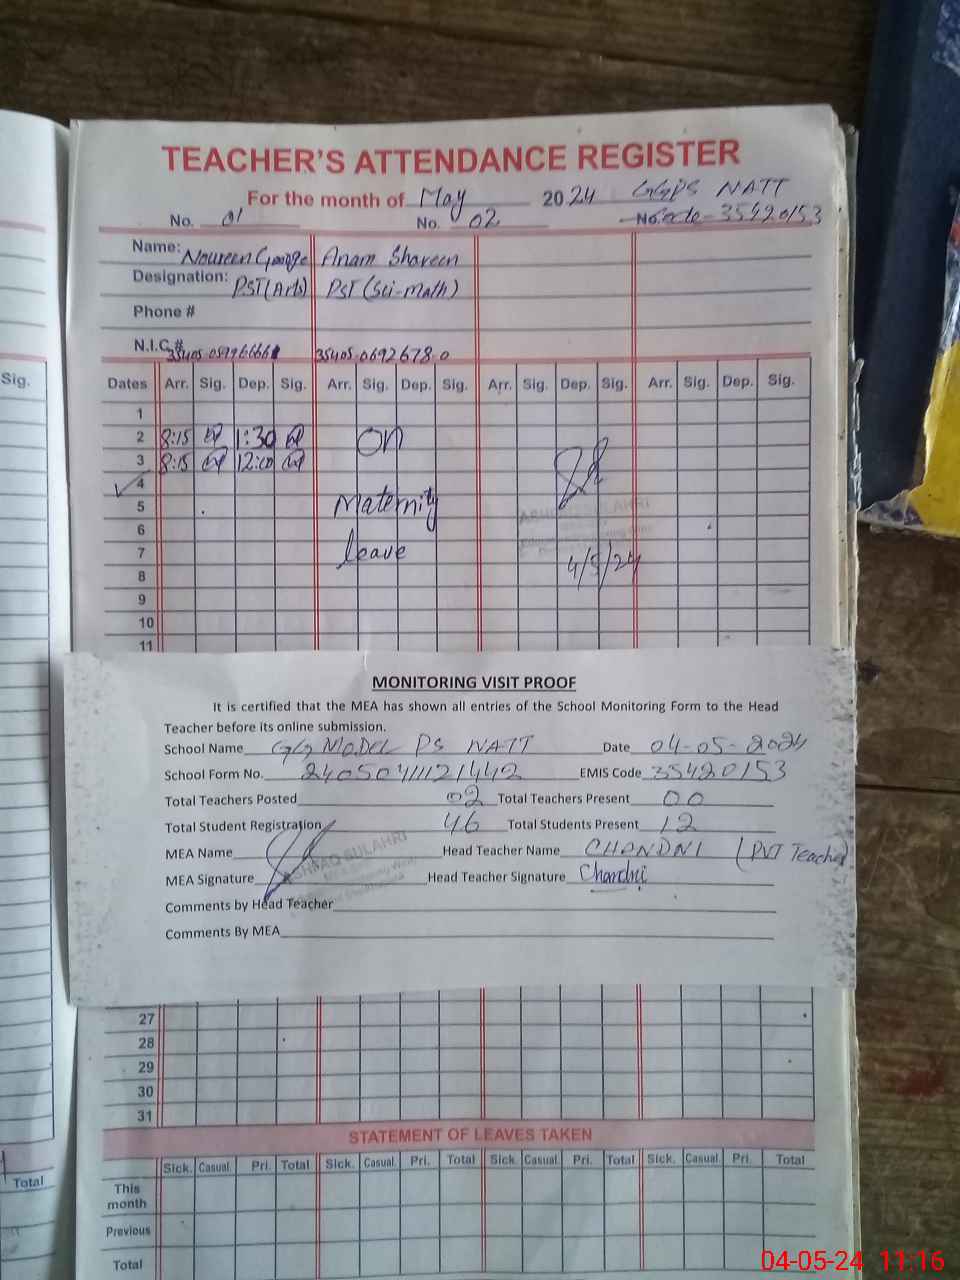 TEACHER'S ATTENDANCE REGISTER
For the month of May 2024 GGPS NATT
No. 01 No. 02 No. Code-35420153
Name: Noureen George Anam Shareen
Designation: PST(Arts) PST (Sci-Math)
Phone #
N.I.C.# 35405-0692678-0
Sig. Dates Arr. Sig. Dep. Sig. Arr. Sig. Dep. Sig. Arr. Sig. Dep. Sig. Arr. Sig. Dep. Sig.
1
2 8:15 1:30 On
3 8:15 12:00
4
5 Maternity
6
7 leave 4/5/24
8
9
10
11
MONITORING VISIT PROOF
It is certified that the MEA has shown all entries of the School Monitoring Form to the Head
Teacher before its online submission.
School Name GG MODEL PS NATT Date 04-05-2024
School Form No. EMIS Code 35420153
Total Teachers Posted 02 Total Teachers Present 00
Total Student Registration 46 Total Students Present 12
MEA Name Head Teacher Name CHANDNI (PVT Teacher)
ASHFAQ SULAHRI
MEA Signature Head Teacher Signature Chandni
Comments by Head Teacher
Comments By MEA
27
28
29
30
31
STATEMENT OF LEAVES TAKEN
Sick. Casual. Pri. Total Sick. Casual. Pri. Total Sick. Casual. Pri. Total Sick. Casual. Pri. Total
Total This
month
Previous
Total
04-05-24 11:16